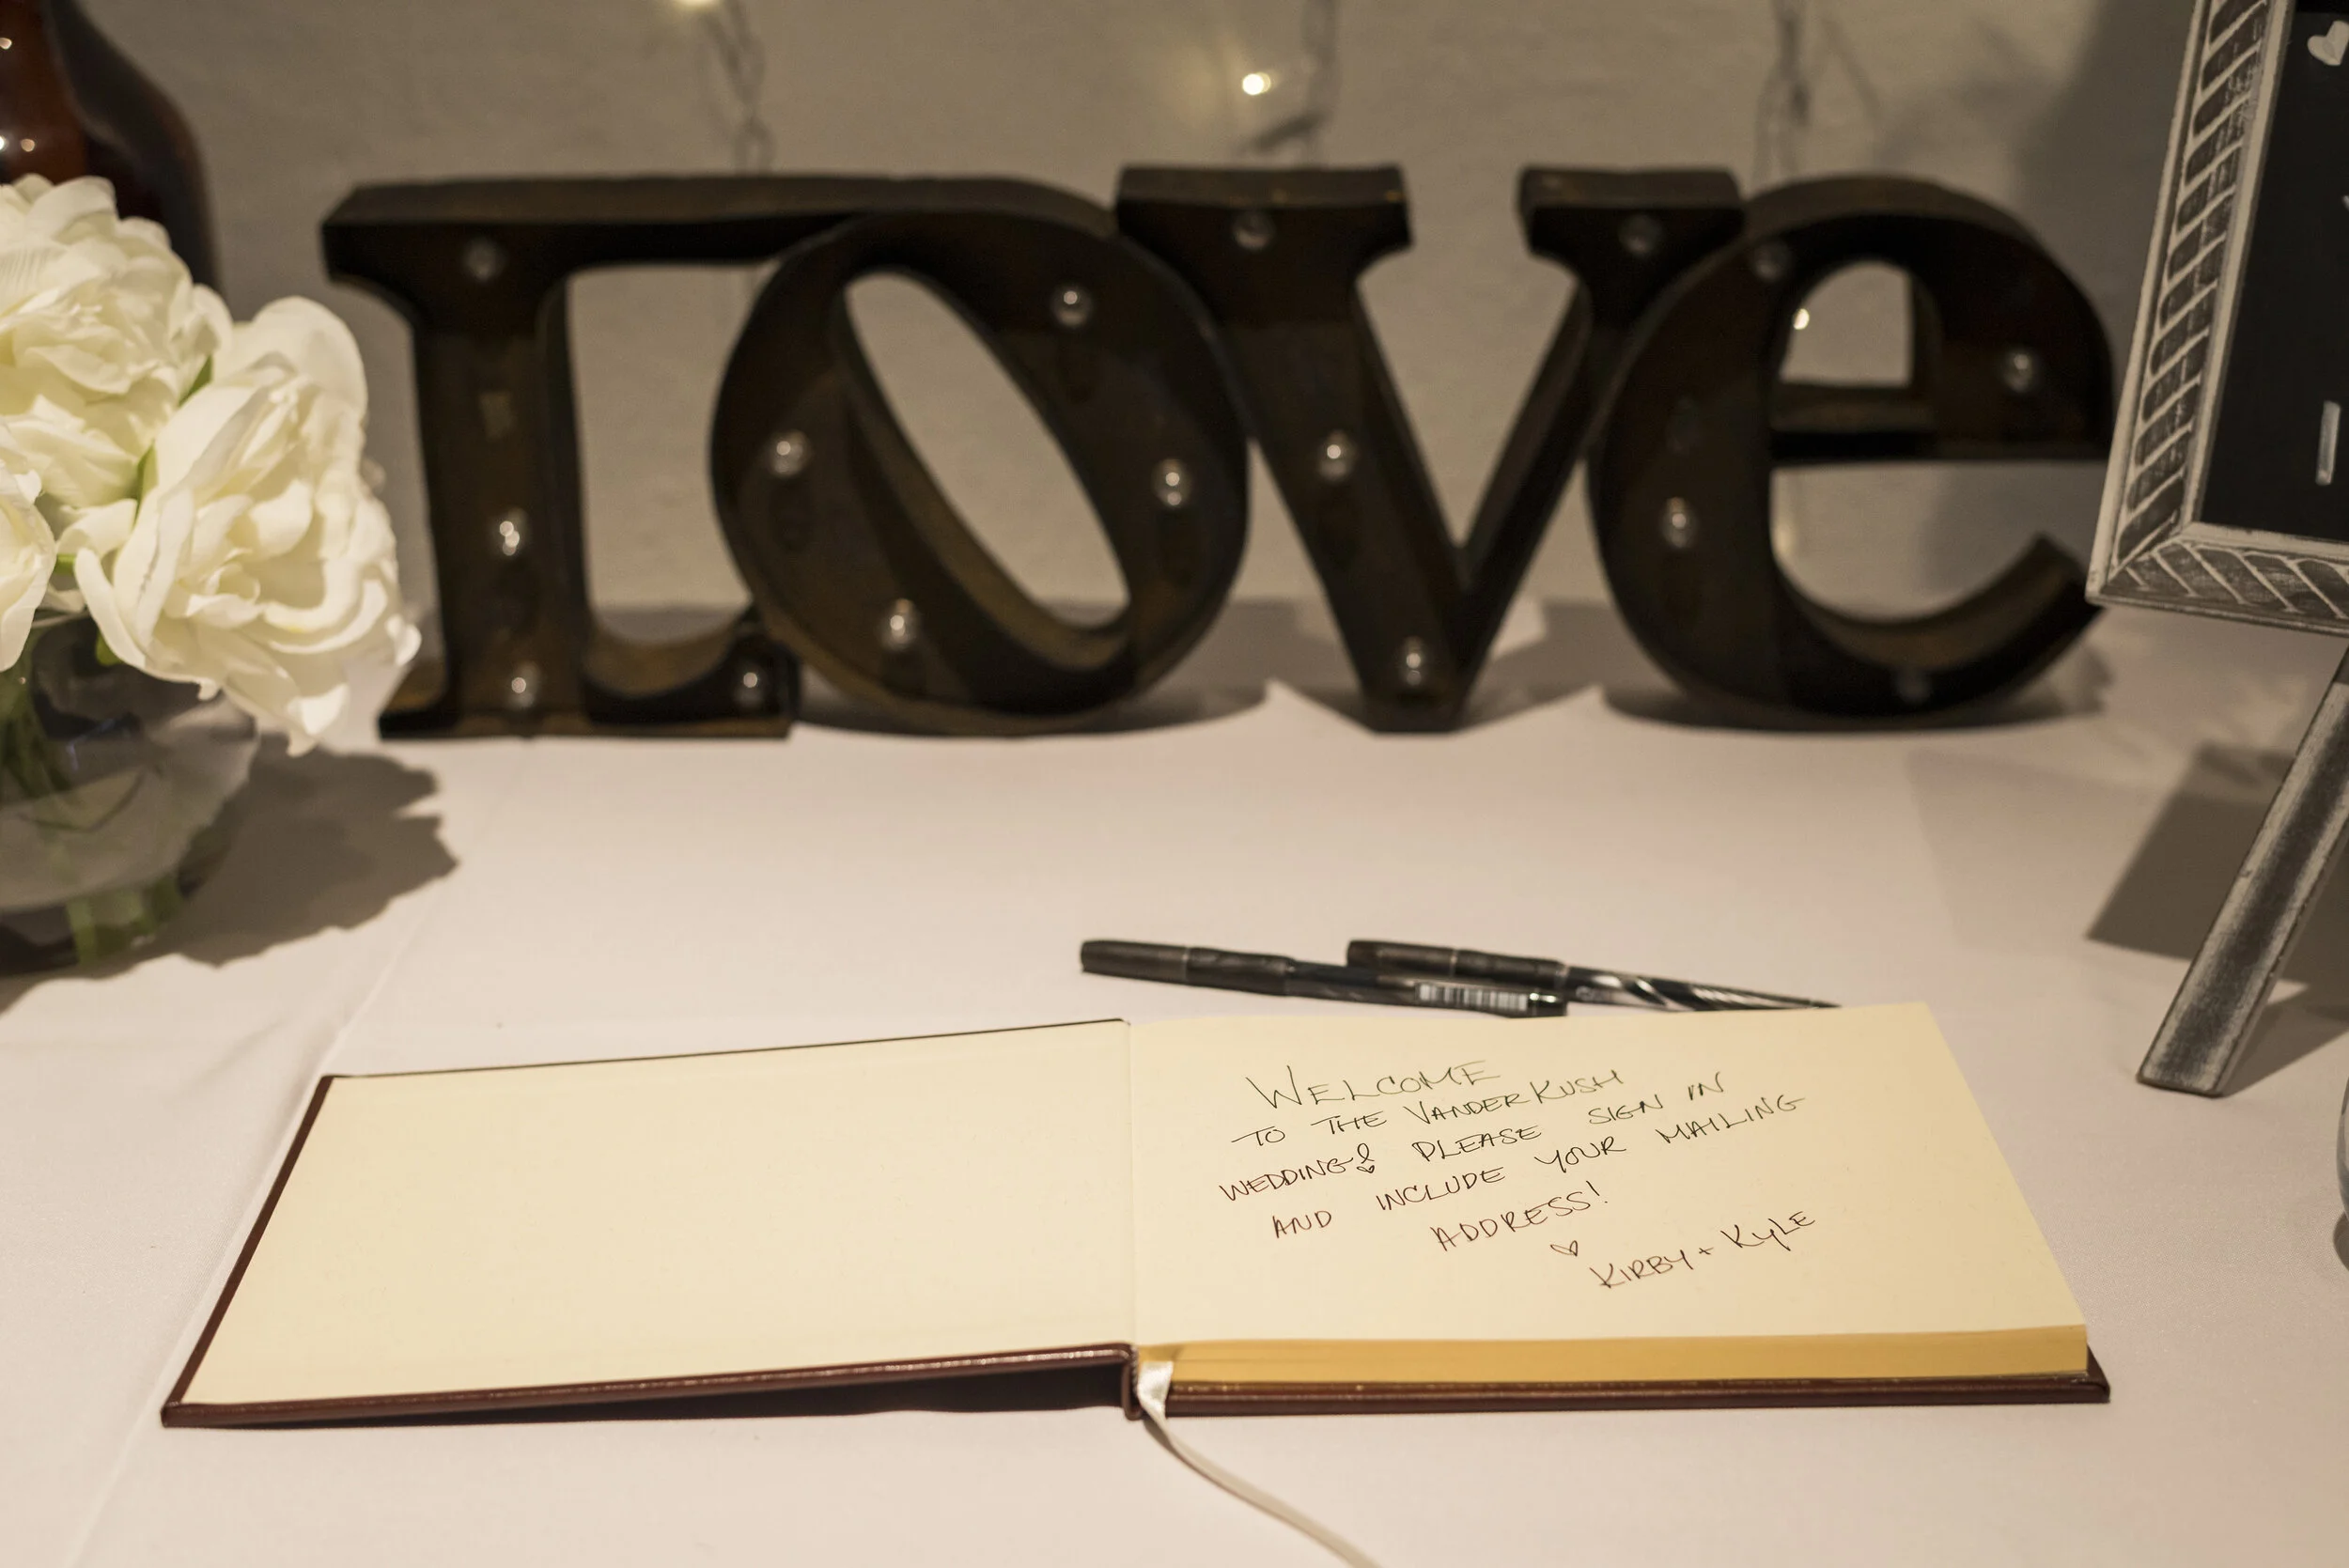 LOVe
WELCOME
TO THE VANDERKUSH
WEDDING! PLEASE SIGN IN
AND INCLUDE YOUR MAILING
ADDRESS!
♡ KIRBY + KYLE